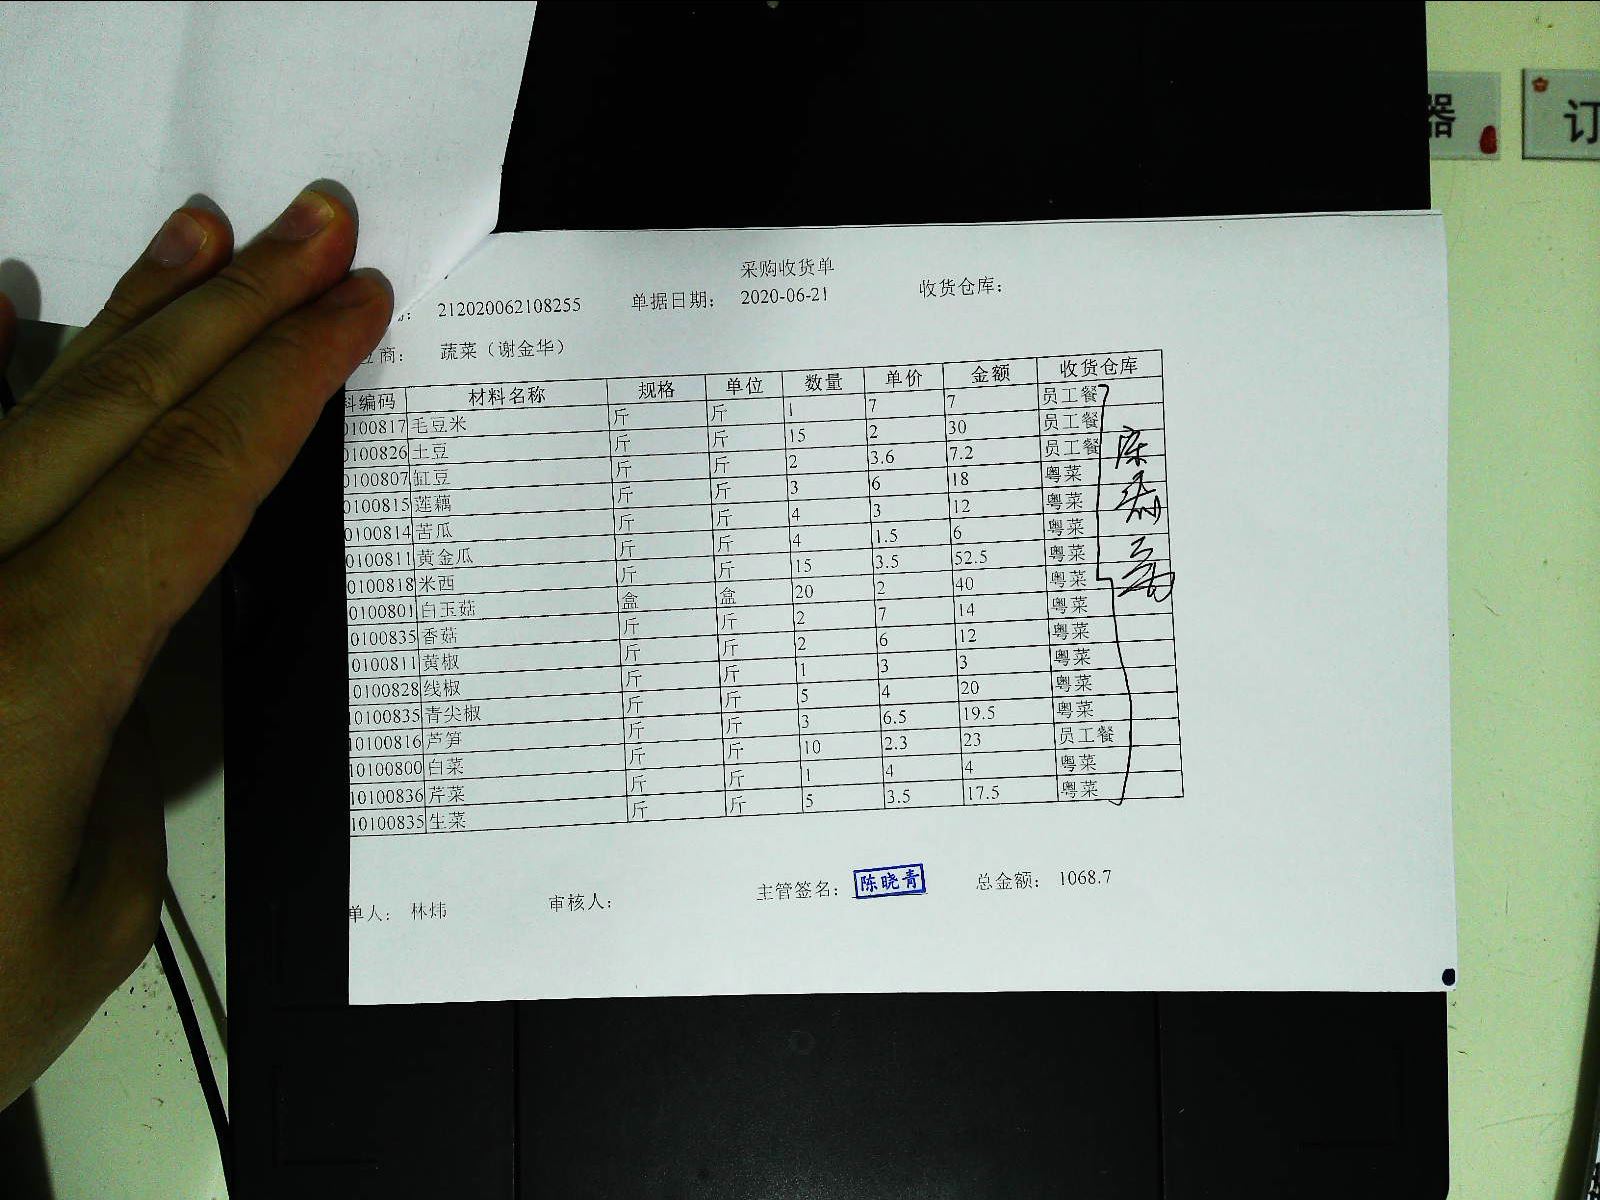 器
订
采购收货单
212020062108255 单据日期： 2020-06-21 收货仓库：
商： 蔬菜（谢金华）
料编码 材料名称 规格 单位 数量 单价 金额 收货仓库
0100817 毛豆米 斤 斤 1 7 7 员工餐
0100826 土豆 斤 斤 15 2 30 员工餐
0100807 缸豆 斤 斤 2 3.6 7.2 员工餐
0100815 莲藕 斤 斤 3 6 18 粤菜
0100814 苦瓜 斤 斤 4 3 12 粤菜
0100811 黄金瓜 斤 斤 4 1.5 6 粤菜
0100818 米西 斤 斤 15 3.5 52.5 粤菜
0100801 白玉菇 盒 盒 20 2 40 粤菜
10100835 香菇 斤 斤 2 7 14 粤菜
10100811 黄椒 斤 斤 2 6 12 粤菜
10100828 线椒 斤 斤 1 3 3 粤菜
10100835 青尖椒 斤 斤 5 4 20 粤菜
10100816 芦笋 斤 斤 3 6.5 19.5 粤菜
10100800 白菜 斤 斤 10 2.3 23 员工餐
10100836 芹菜 斤 斤 1 4 4 粤菜
10100835 生菜 斤 斤 5 3.5 17.5 粤菜
单人： 林炜 审核人： 主管签名： 陈晓青 总金额： 1068.7